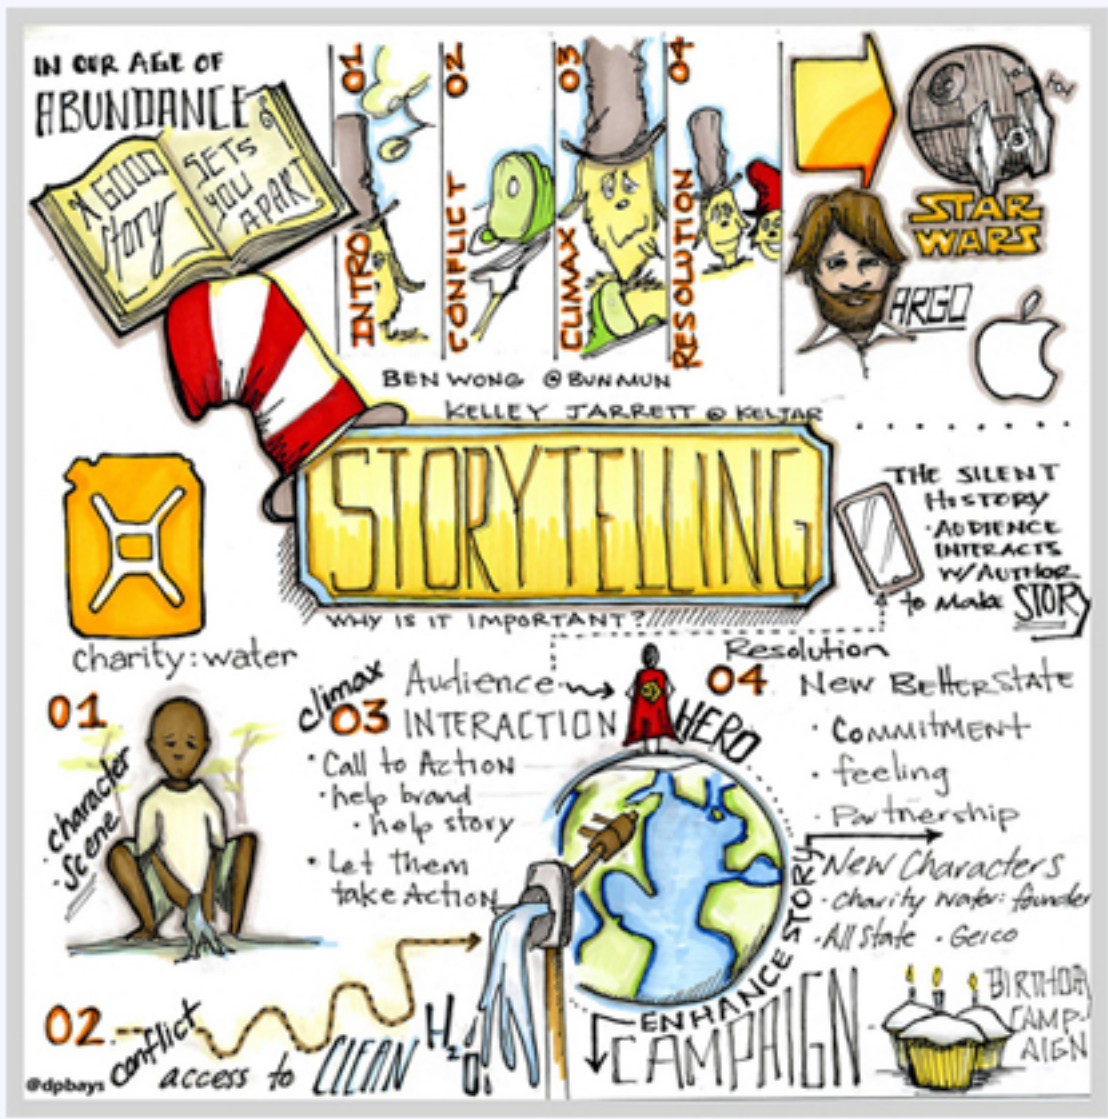 IN OUR AGE OF
ABUNDANCE
A GOOD
story
SETS
YOU
APART
01
INTRO
02
CONFLICT
03
CLIMAX
04
RESOLUTION
STAR
WARS
ARGO
BEN WONG @BUNMUN
KELLEY JARRETT @ KELJAR
STORYTELLING
WHY IS IT IMPORTANT?
THE SILENT
HISTORY
· AUDIENCE
INTERACTS
W/ AUTHOR
to Make STORY
Charity: water
01
· character
· Scene
02
conflict
access to CLEAN H2O
climax
03
Audience
INTERACTION
· Call to Action
· help brand
· help story
· Let them
take Action
HERO
ENHANCE STORY
CAMPAIGN
Resolution
04 New Better State
· Commitment
· feeling
· Partnership
New Characters
· charity water: founder
· All State · Geico
BIRTHDAY
CAMP-
AIGN
@dpbays